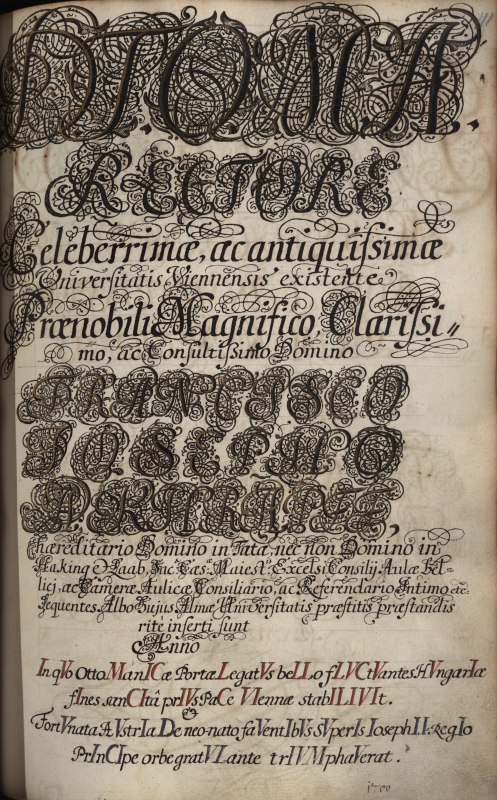 DTOMA.
RECTORE
Celeberrimæ, ac antiquissimæ
Universitatis Viennensis existente
Prænobili Magnifico, Clarissi„
mo, ac Consultissimo Domino
FRANCISCO
IOSEPHO
A
hæreditario Domino in Tata, nec non Domino in
Haking & Raab, Sac: Cæs: Maiest: Excelsi Consilij Aulæ Bel-
licj, ac Cameræ Aulicæ Consiliario, ac Referendario Intimo etc:
sequentes Albo hujus Almæ Universitatis præstitis præstandis
rite inserti sunt
Anno
In qVo OttoManICæ Portæ LegatVs beLLo fLVCtVantes HVngarIæ
fInes sanCItâ prIVs PaCe VIennæ stabILIVIt.
&
FortVnata AVstrIa De neo-nato, faVentIbVs SVperIs Ioseph II: RegIo
PrInCIpe orbe gratVLante trIVMphaVerat.
1700